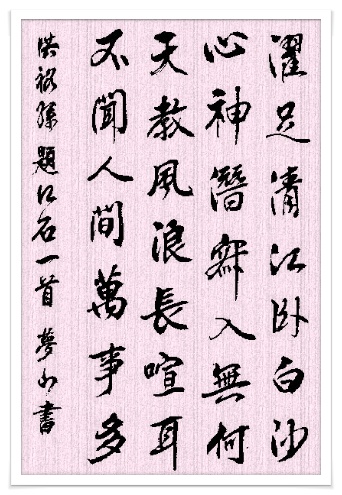 濯足清江卧白沙
心神潛寂入無何
天教風浪長喧耳
不聞人間萬事多
洪裕孫題江石一首 夢書